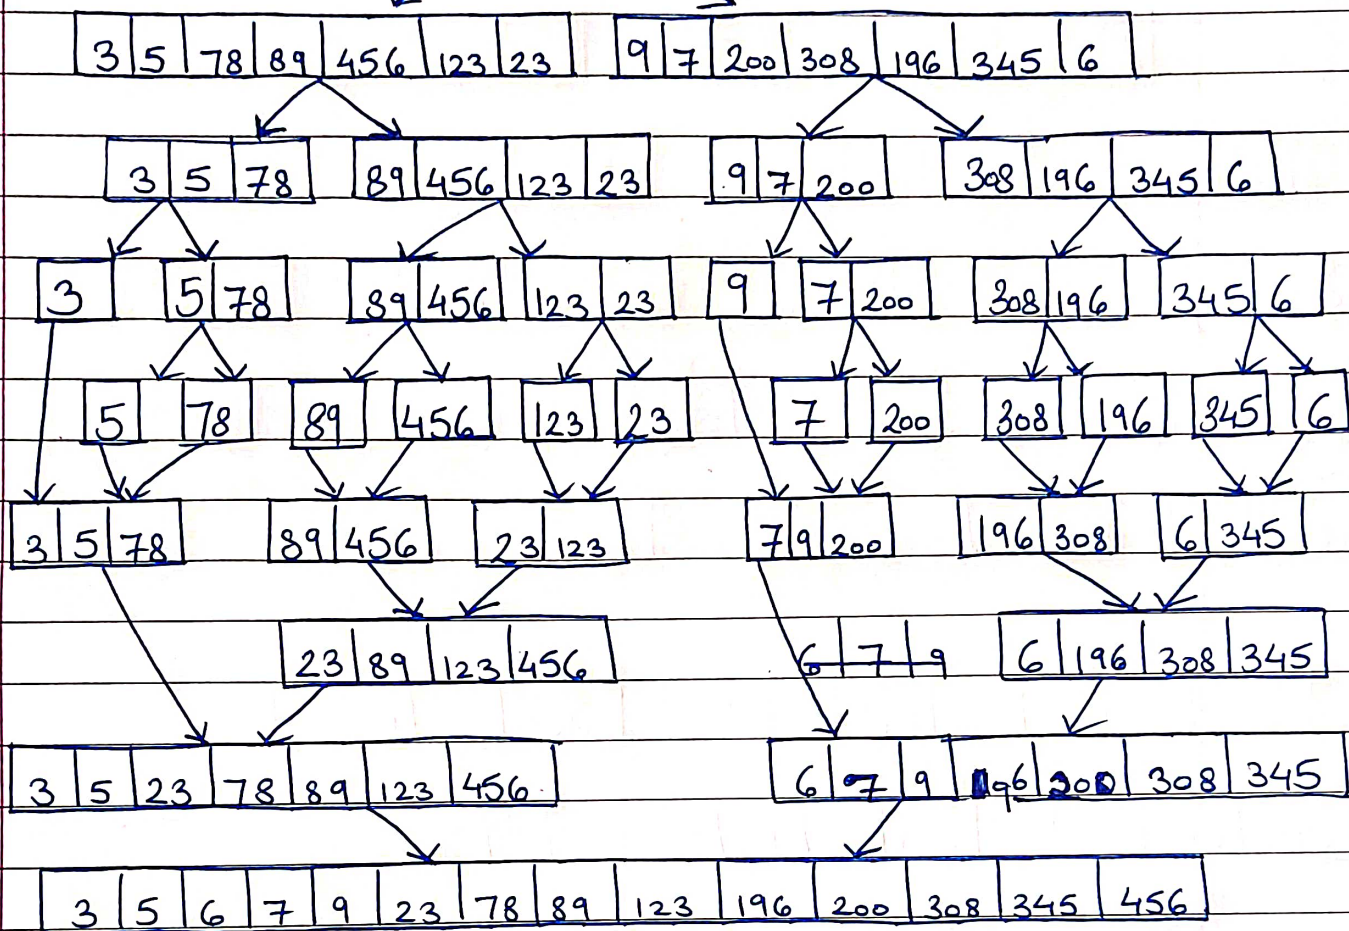 3 5 78 89 456 123 23 9 7 200 308 196 345 6
3 5 78 89 456 123 23 9 7 200 308 196 345 6
3 5 78 89 456 123 23 9 7 200 308 196 345 6
5 78 89 456 123 23 7 200 308 196 345 6
3 5 78 89 456 23 123 7 9 200 196 308 6 345
23 89 123 456 6 7 9 6 196 308 345
3 5 23 78 89 123 456 6 7 9 196 200 308 345
3 5 6 7 9 23 78 89 123 196 200 308 345 456